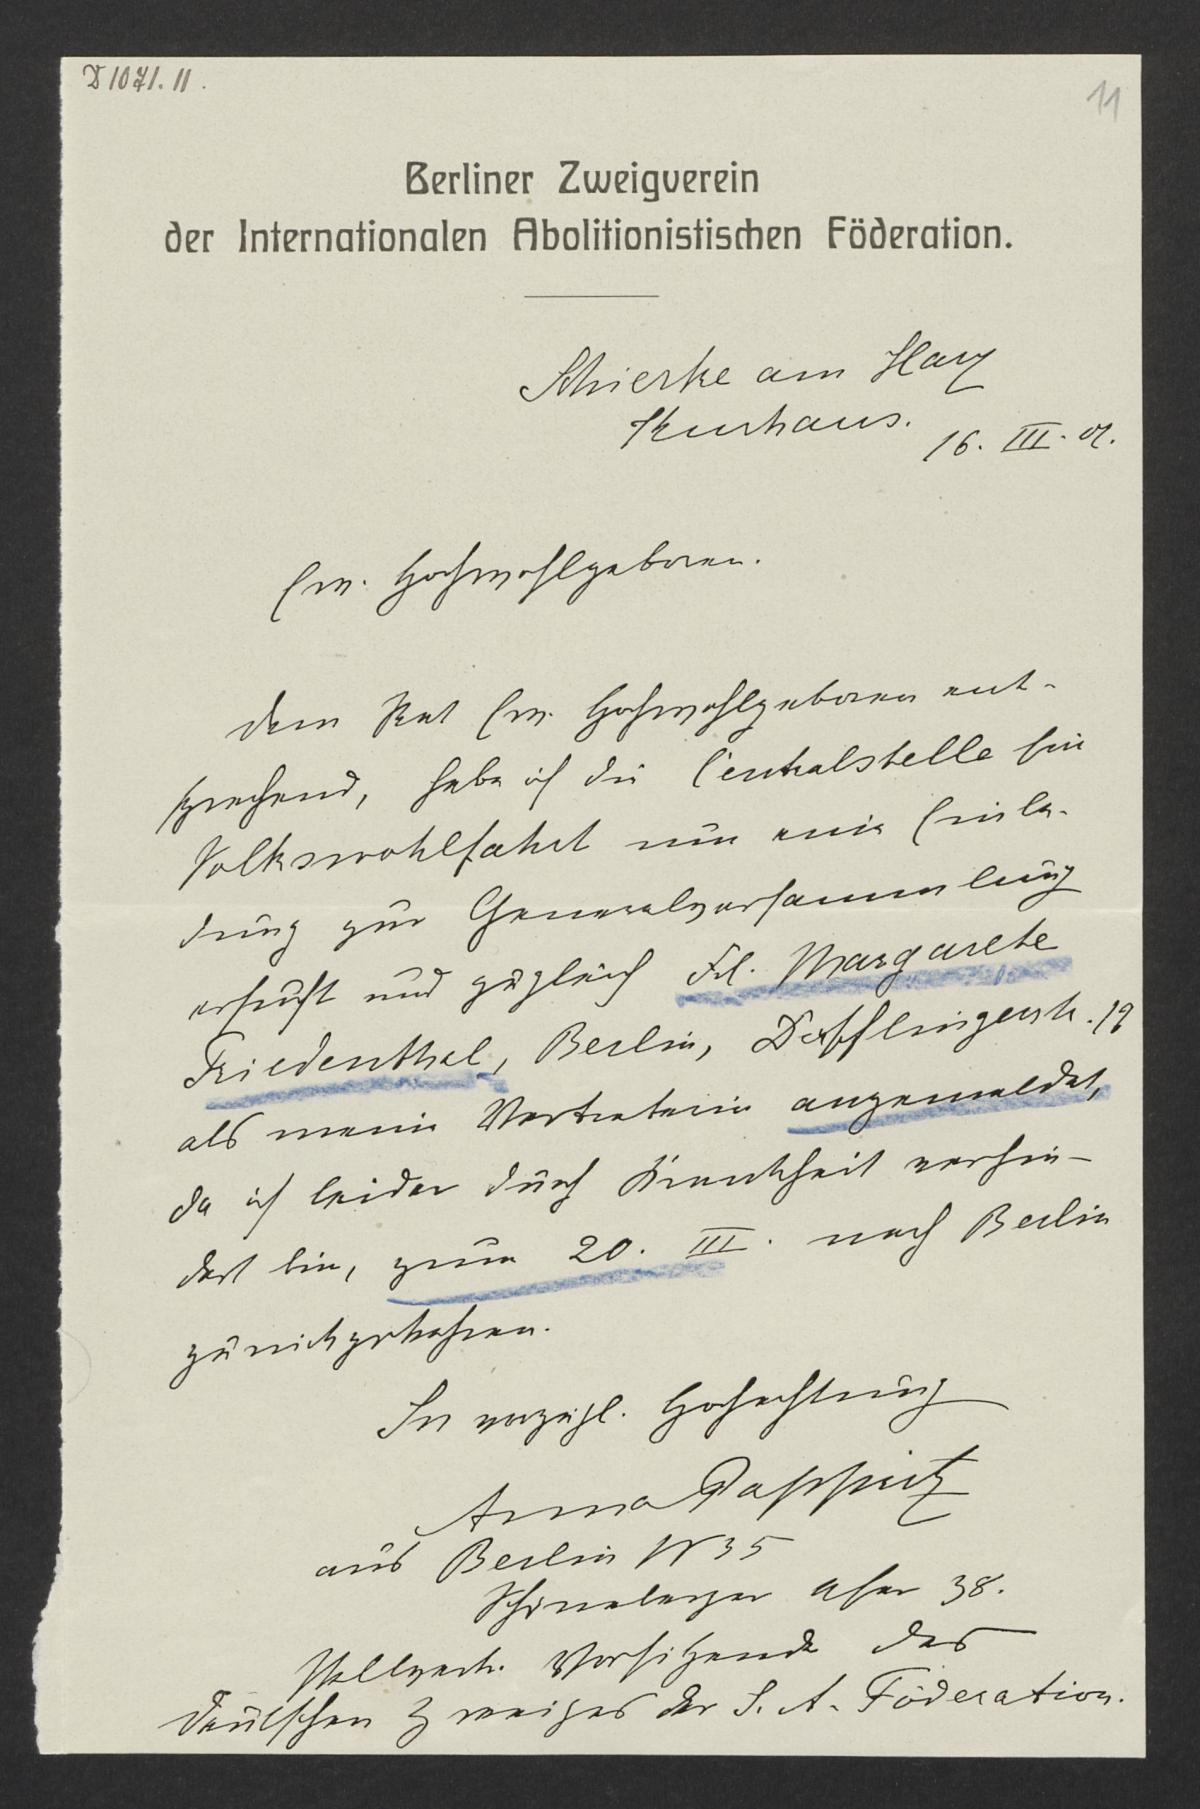 D 1071.11.
11
Berliner Zweigverein
der Internationalen Abolitionistischen Föderation.
Schierke am Harz
Kurhaus.
16. III. 07.
Ew. Hochwohlgeboren.
Dem Rat Ew. Hochwohlgeboren ent-
sprechend, habe ich die Centralstelle für
Volkswohlfahrt um eine Einla-
dung zur Generalversammlung
ersucht und zugleich Frl. Margarete
Friedenthal, Berlin, Derfflingerstr. 19
als meine Vertreterin angemeldet,
da ich leider durch Krankheit verhin-
dert bin, zum 20. III. nach Berlin
zurückzukehren.
In vorzügl. Hochachtung
Anna Pappritz
aus Berlin W 35
Schöneberger Ufer 38.
Stellvertr. Vorsitzende des
Deutschen Zweiges der I. A. Föderation.